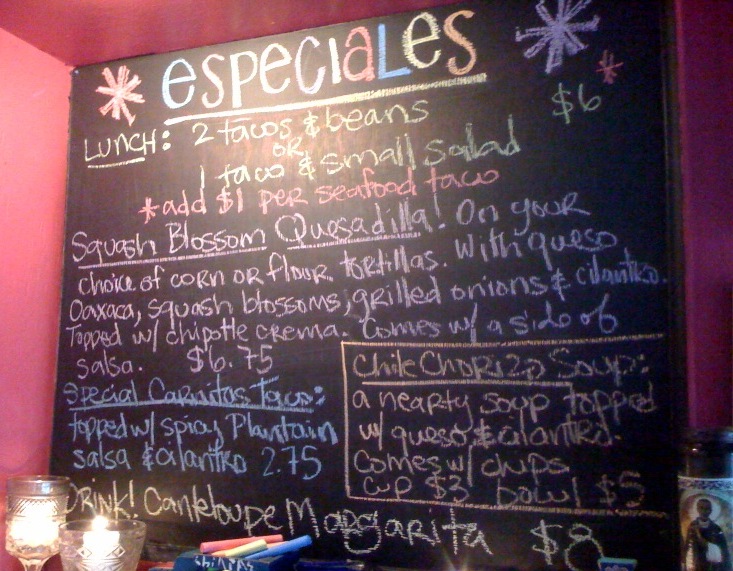 especiales
LUNCH: 2 tacos & beans $6
OR
1 taco & small salad
*add $1 per seafood taco
Squash Blossom Quesadilla! On your
choice of corn or flour tortillas. With queso
Oaxaca, squash blossoms, grilled onions & cilantro.
Topped w/ chipotle crema. Comes w/ a side of
salsa. $6.75
Chile Chorizo Soup:
a hearty soup topped
w/ queso & cilantro.
Comes w/ chips
cup $3 bowl $5
Special Carnitas Taco:
topped w/ spicy Plantain
salsa & cilantro 2.75
DRINK! Canteloupe Margarita $8